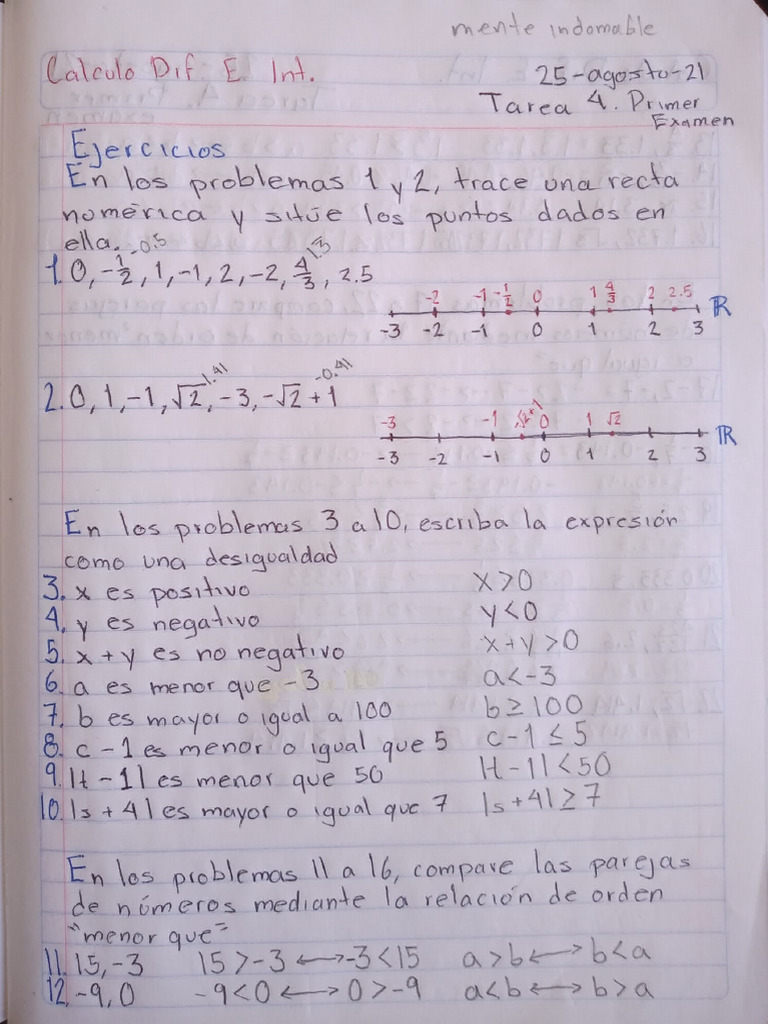 mente indomable
Calculo Dif. E. Int.
25-agosto-21
Tarea 4. Primer
Examen
Ejercicios
En los problemas 1 y 2, trace una recta
numérica y sitúe los puntos dados en
ella.
-0.5
1.3
1. 0, -1/2, 1, -1, 2, -2, 4/3, 2.5
-2 -1 -1/2 0 1 4/3 2 2.5 ℝ
-3 -2 -1 0 1 2 3
1.41
-0.41
2. 0, 1, -1, √2, -3, -√2 + 1
-3 -1 0 1 √2 ℝ
-3 -2 -1 0 1 2 3
En los problemas 3 a 10, escriba la expresión
como una desigualdad
3. x es positivo x>0
4. y es negativo y<0
5. x+y es no negativo x+y>0
6. a es menor que -3 a<-3
7. b es mayor o igual a 100 b≥100
8. c-1 es menor o igual que 5 c-1≤5
9. |t-1| es menor que 50 |t-1|<50
10. |s+4| es mayor o igual que 7 |s+4|≥7
En los problemas 11 a 16, compare las parejas
de números mediante la relación de orden
"menor que"
11. 15, -3 15>-3 ⟷ -3<15 a>b ⟷ b<a
12. -9, 0 -9<0 ⟷ 0>-9 a<b ⟷ b>a